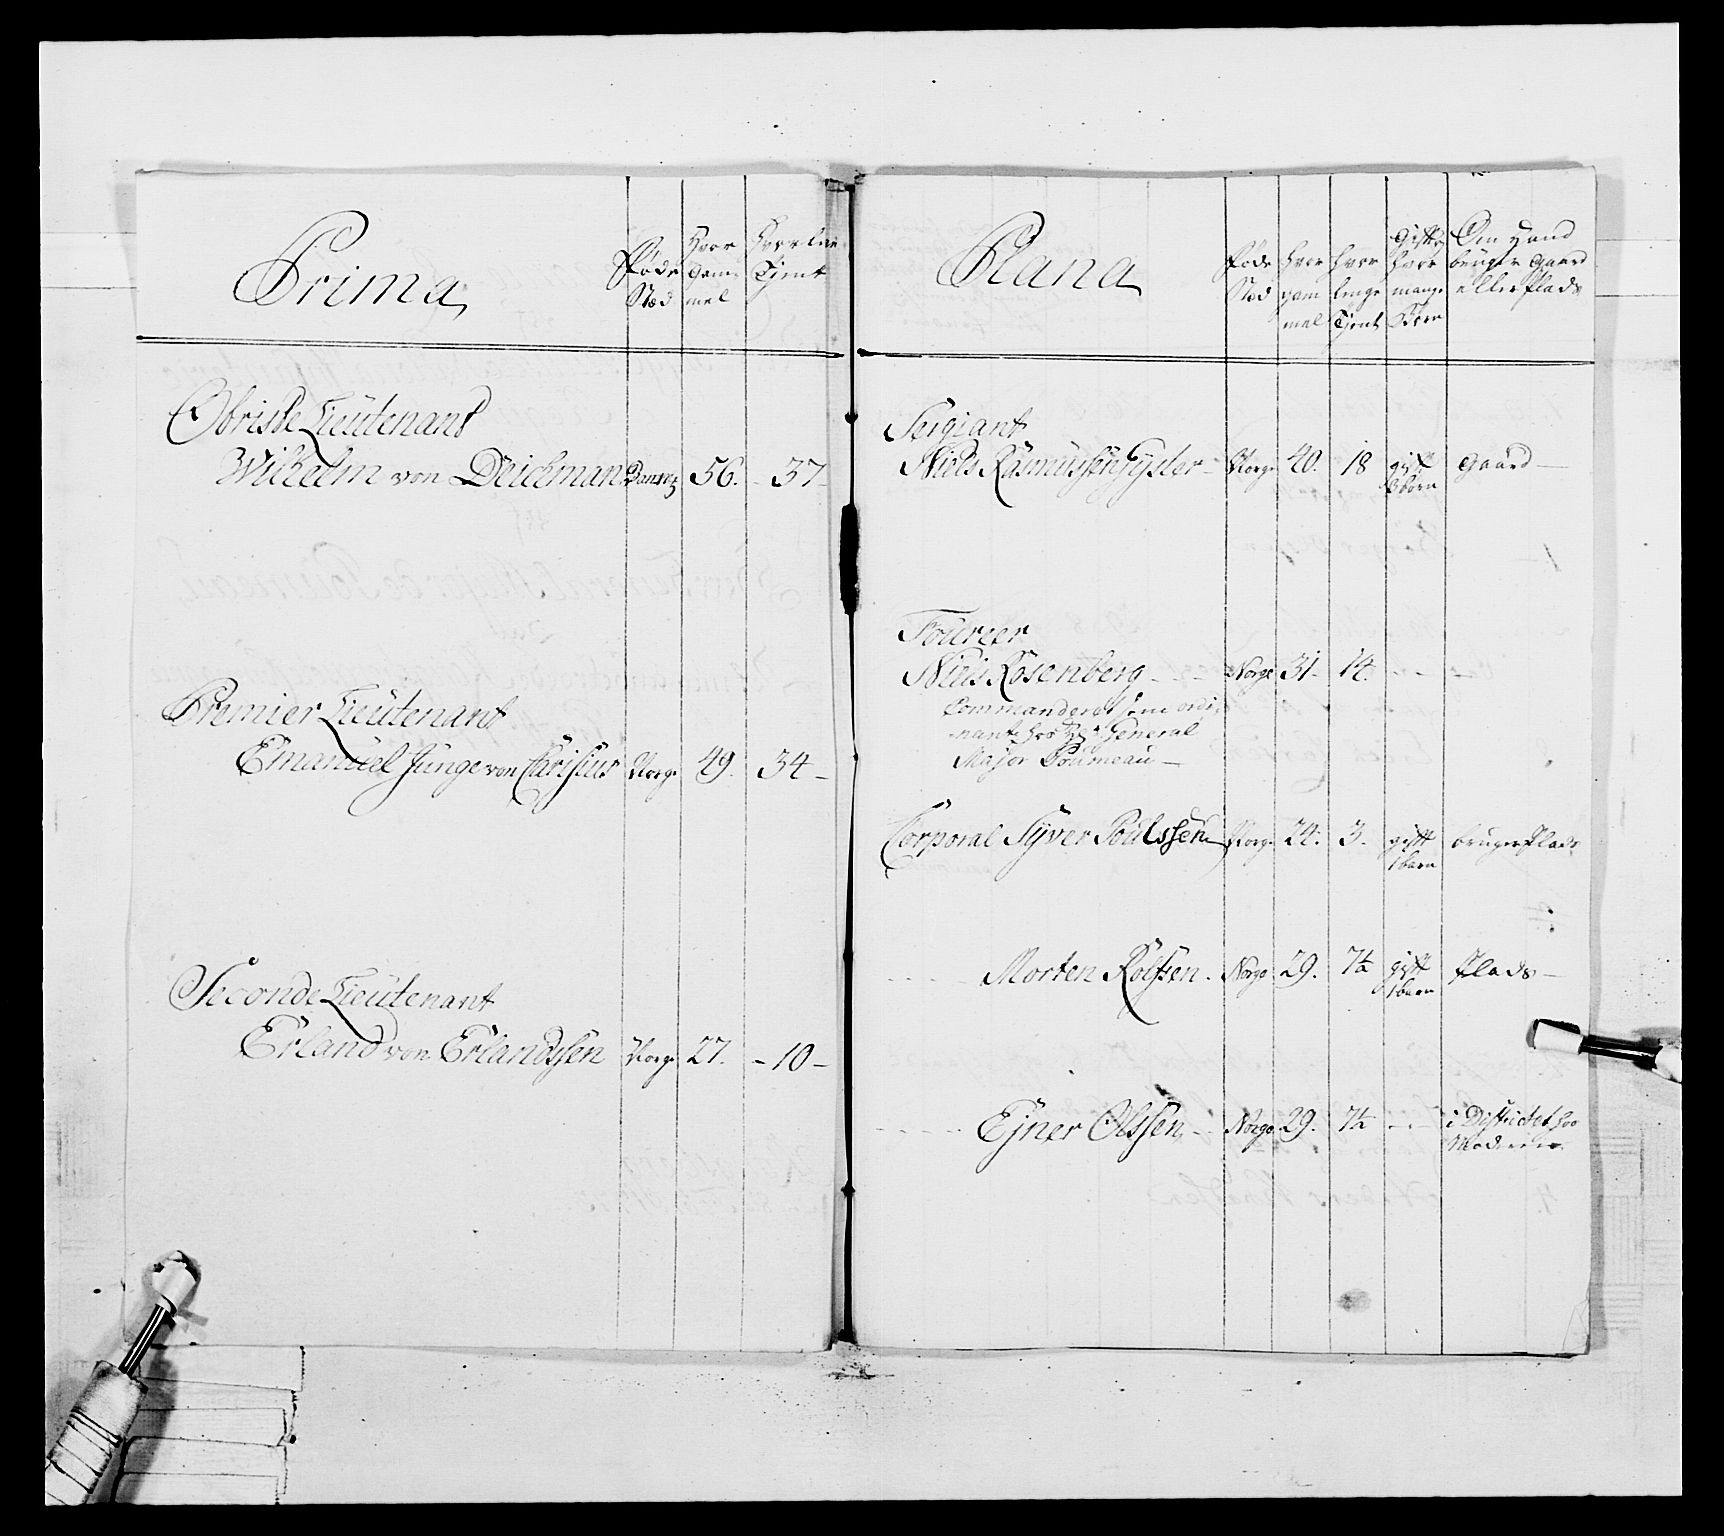 Prima
Føde Stæd
Hvor Gam- mel
Hvor lenge Tjent
Obriste Lieutenant
Wilhelm von Deichman Danzig 56. - 37 -
Premier Lieutenant
Emanuel Junge von Chrisius Norge 49. 34 -
Seconde Lieutenant
Erland von Erlandssen Norge 27. - 10 -
Plana
Føde Stæd
Hvor gam mel
Hvor lenge Tjent
Gift og hvor mange Børn
Om Hand bruger Gaard eller Plads
Sergiant
Niels Rasmussen - Norge 40. 18 gift Gaard -
3 børn
Fourier
Niels Rosenberg - - - Norge 31 - 14. - - -
Commanderet som ordi-
nants hos Hr General
Major Poumeau -
Corporal Syver Poulssen Norge 24. 3. gift bruger Plads
1 barn
- - - - Morten Rolfsen - Norge 29. 7½ gift Plads -
1 barn
- - - - - Ejner Olssen - Norge 29. 7½ - - - i Districtet hos
Moderen